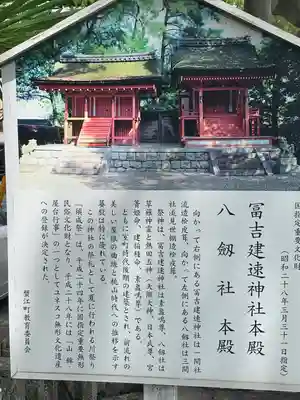 国指定重要文化財
(昭和二十八年三月三十一日指定)
冨吉建速神社本殿
八劔社本殿
向かって右側にある冨吉建速神社は一間社
流造桧皮葺、向かって左側にある八劔社は三間
社流見世棚造桧皮葺。
祭神は、冨吉建速神社は素盞嗚尊、八劔社は
草薙神霊と熱田五神(天照大神、日本武尊、宮
簀姫命、建稲種命、素盞嗚尊)である。
ともに室町時代後期の建築とされ、前流れの
美しい屋根の曲線と桃山時代への推移を示す
蟇股は特に優れている。
この神社の祭礼として夏に行われる川祭り
「須成祭」は、平成二十四年に国指定重要無形
民俗文化財となり、平成二十八年には「山・鉾・
屋台行事」の一つとしてユネスコ無形文化遺産
への登録が決定された。
蟹江町教育委員会